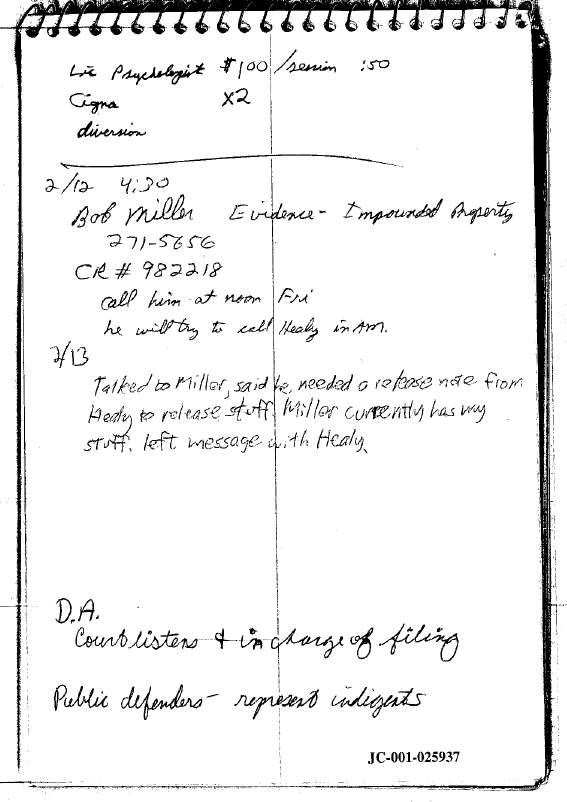 Lic Psychologist $100/session :50
Cigna X2
diversion
2/12 4:30
Bob Miller Evidence - Impounded Property
271-5656
CR # 982218
call him at noon Fri
he will try to call Healy in AM.
2/13
Talked to Miller, said he needed a release note from
Healy to release stuff. Miller currently has my
stuff. left message with Healy.
D.A.
Court listens & in charge of filing
Public defenders - represent indigents
JC-001-025937